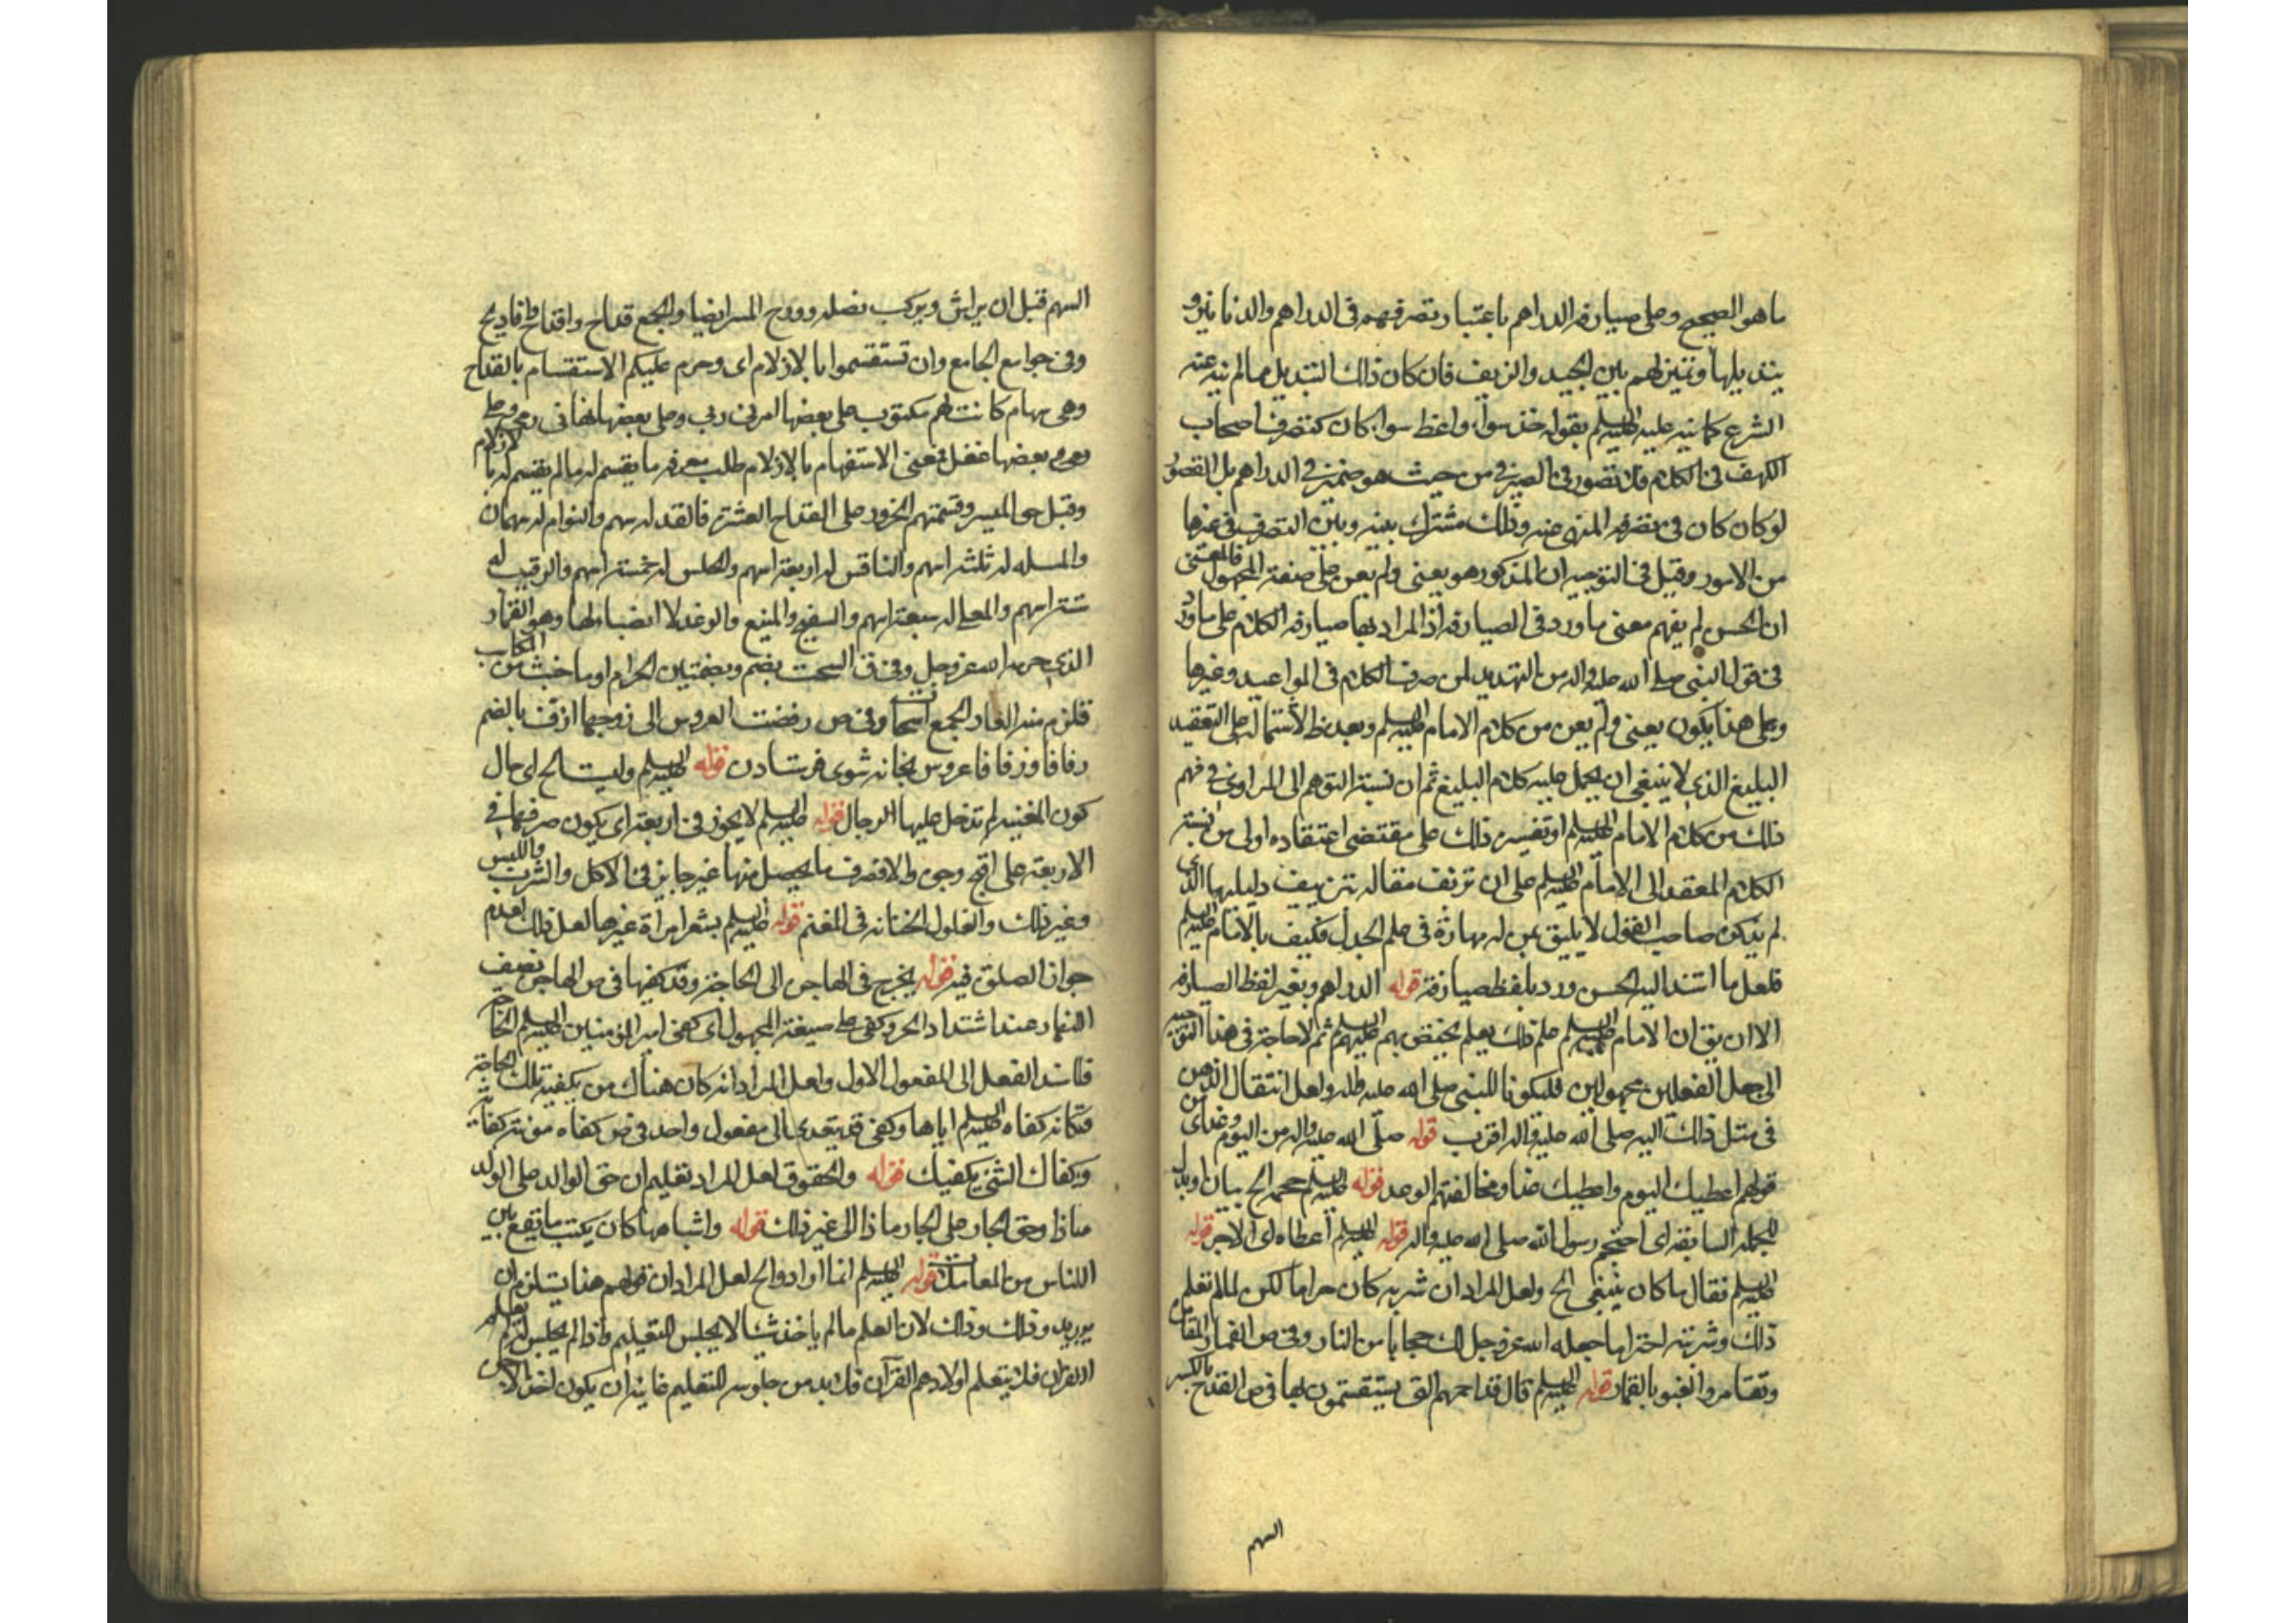 ما هو الصحيح وعلى صيارفة الدراهم باعتبار تصرفهم فى الدراهم والدنانير و
بتبديلها وتميزهم بين الجيد والزيف فان كان ذلك التبديل مما لم ينه عنه
الشرع كما نبه عليه عليه السلم بقوله خذ سواء واعط سواء كان كتصرف اصحاب
الكهف فى الكلام فلا تصور فى الصيرفى من حيث هو صيرفى الدراهم بل القصور
لو كان كان فى تصرفه المنهى عنه وذلك مشترك بينه وبين التصرف فى غيرها
من الامور وقيل فى التوجيه ان المذكور هو يعنى ولم يعن على صيغة المجهول فالمعنى
ان الحسن لم يفهم معنى ما ورد فى الصيارفة اذ المراد بها صيارفة الكلام على ما ورد
فى قول النبى صلى الله عليه واله من التهديد لمن صرف الكلام فى المواعيد وغيرها
وعلى هذا يكون يعنى ولم يعن من كلام الامام عليه السلم وبعد ظ لاشتماله على التعقيد
البليغ الذى لا ينبغى ان يحمل عليه كلام البليغ ثم ان نسبة التوهم الى الراوى فى فهم
ذلك من كلام الامام عليه السلم او تفسيره ذلك على مقتضى اعتقاده اولى من نسبة
الكلام المعقد الى الامام عليه السلم على ان تزيف مقاله بتزييف دليلها الذى
لم يذكره صاحب القول لا يليق بمن له مهارة فى علم الجدل فكيف بالامام عليه السلم
فلعل ما استند اليه الحسن ورد بلفظ صيارفة قوله الدراهم وبغير لفظ الصيارفة
الا ان يق ان الامام عليه السلم علم ذلك بعلم يختص بهم عليهم السلم ثم لا حاجة فى هذا التوجيه
الى جعل الفعلين مجهولين فليكونا للنبى صلى الله عليه واله ولعل انتقال الذهن
فى مثل ذلك اليه صلى الله عليه واله اقرب قوله صلى الله عليه واله من اليوم وغدا من
قولهم اعطيك اليوم واعطيك غدا ومخالفتهم الوعد قوله عليه السلم حجمه الخ بيان او بدل
للجملة السابقة اى احتجم رسول الله صلى الله عليه واله قوله عليه السلم اعطاه اى الاجر قوله
عليه السلم فقال ما كان ينبغى الخ ولعل المراد ان شربه كان حراما لكن لما لم تعلم
ذلك وشربته احتراما جعله الله عز وجل لك حجابا من النار وفى ص القمار المقامرة
وتقامروا لعبوا بالقمار قوله عليه السلم قال قداحهم التى يستقسمون بها فى ص القدح بالكسر
السهم
السهم قبل ان يراش ويركب نصله وقدح الميسر ايضا والجمع قداح واقداح واقاديح
وفى جوامع الجامع وان تستقسموا بالازلام اى وحرم عليكم الاستقسام بالقداح
وهى سهام كانت لهم مكتوب على بعضها امرنى ربى وعلى بعضها نهانى ربى وعلى
بعضها غفل فمعنى الاستفهام بالازلام طلب معرفة ما يقسم له مما لم يقسم له بالازلام
وقيل هى الميسر وقسمتهم الجزور على القداح العشرة فالفذ له سهم والتوام له سهمان
والمسبل له ثلثة اسهم والنافس له اربعة اسهم والحلس له خمسة اسهم والرقيب له
ستة اسهم والمعلى له سبعة اسهم والسفيح والمنيح والوغد لا انصباء لها وهو القمار
الذى حرمه الله عز وجل وفى ق السحت بضم وبضمتين الحرام او ما خبث من المكاسب
فلزم منه العار والجمع اسحات وفى ص زففت العروس الى زوجها ازف بالضم
زفا وزفافا عروس بخانه شوى فرستادن قوله عليه السلم وليست الخ اى حال
كون المغنية لم تدخل عليها الرجال قوله عليه السلم لا يجوز فى اربعة اى يكون صرفها فى
الاربعة على اقبح وجه والا فصرف ما يحصل منها غير جايز فى الاكل والشرب واللبس
وغير ذلك والغلول الخيانة فى المغنم قوله عليه السلم بشعر امراة غيرها لعل ذلك لعدم
جواز الصلوة فيه قوله يخرج فى الهاجرة الى الحاجة وقد كفيها فى ص الهاجرة نصف
النهار عند اشتداد الحر وكفى على صيغة المجهول اى كفى امير المؤمنين عليه السلم الحاجة
فاسند الفعل الى المفعول الاول ولعل المراد انه كان هناك من يكفيه تلك الحاجة
فكانه كفاه عليه السلم اياها وكفى قد يتعدى الى مفعول واحد فى ص كفاه مؤنته كفاية
وكفاك الشئ يكفيك قوله والحقوق لعل المراد تعليم ان حق الوالد على الولد
ماذا وحق الجار على الجار ماذا الى غير ذلك قوله واشباهها كان يكتب ما يقع بين
الناس من المعاملات قوله عليه السلم انما ارادوا الخ لعل المراد ان قولهم هذا يستلزم ان
يريد وذلك وذلك لان المعلم ما لم ياخذ شيئا لا يجلس للتعليم واذا لم يجلس لم
القران فلا يتعلم اولادهم القرآن فلا بد من جلوسه للتعليم غايته ان يكون اخذ الاجر